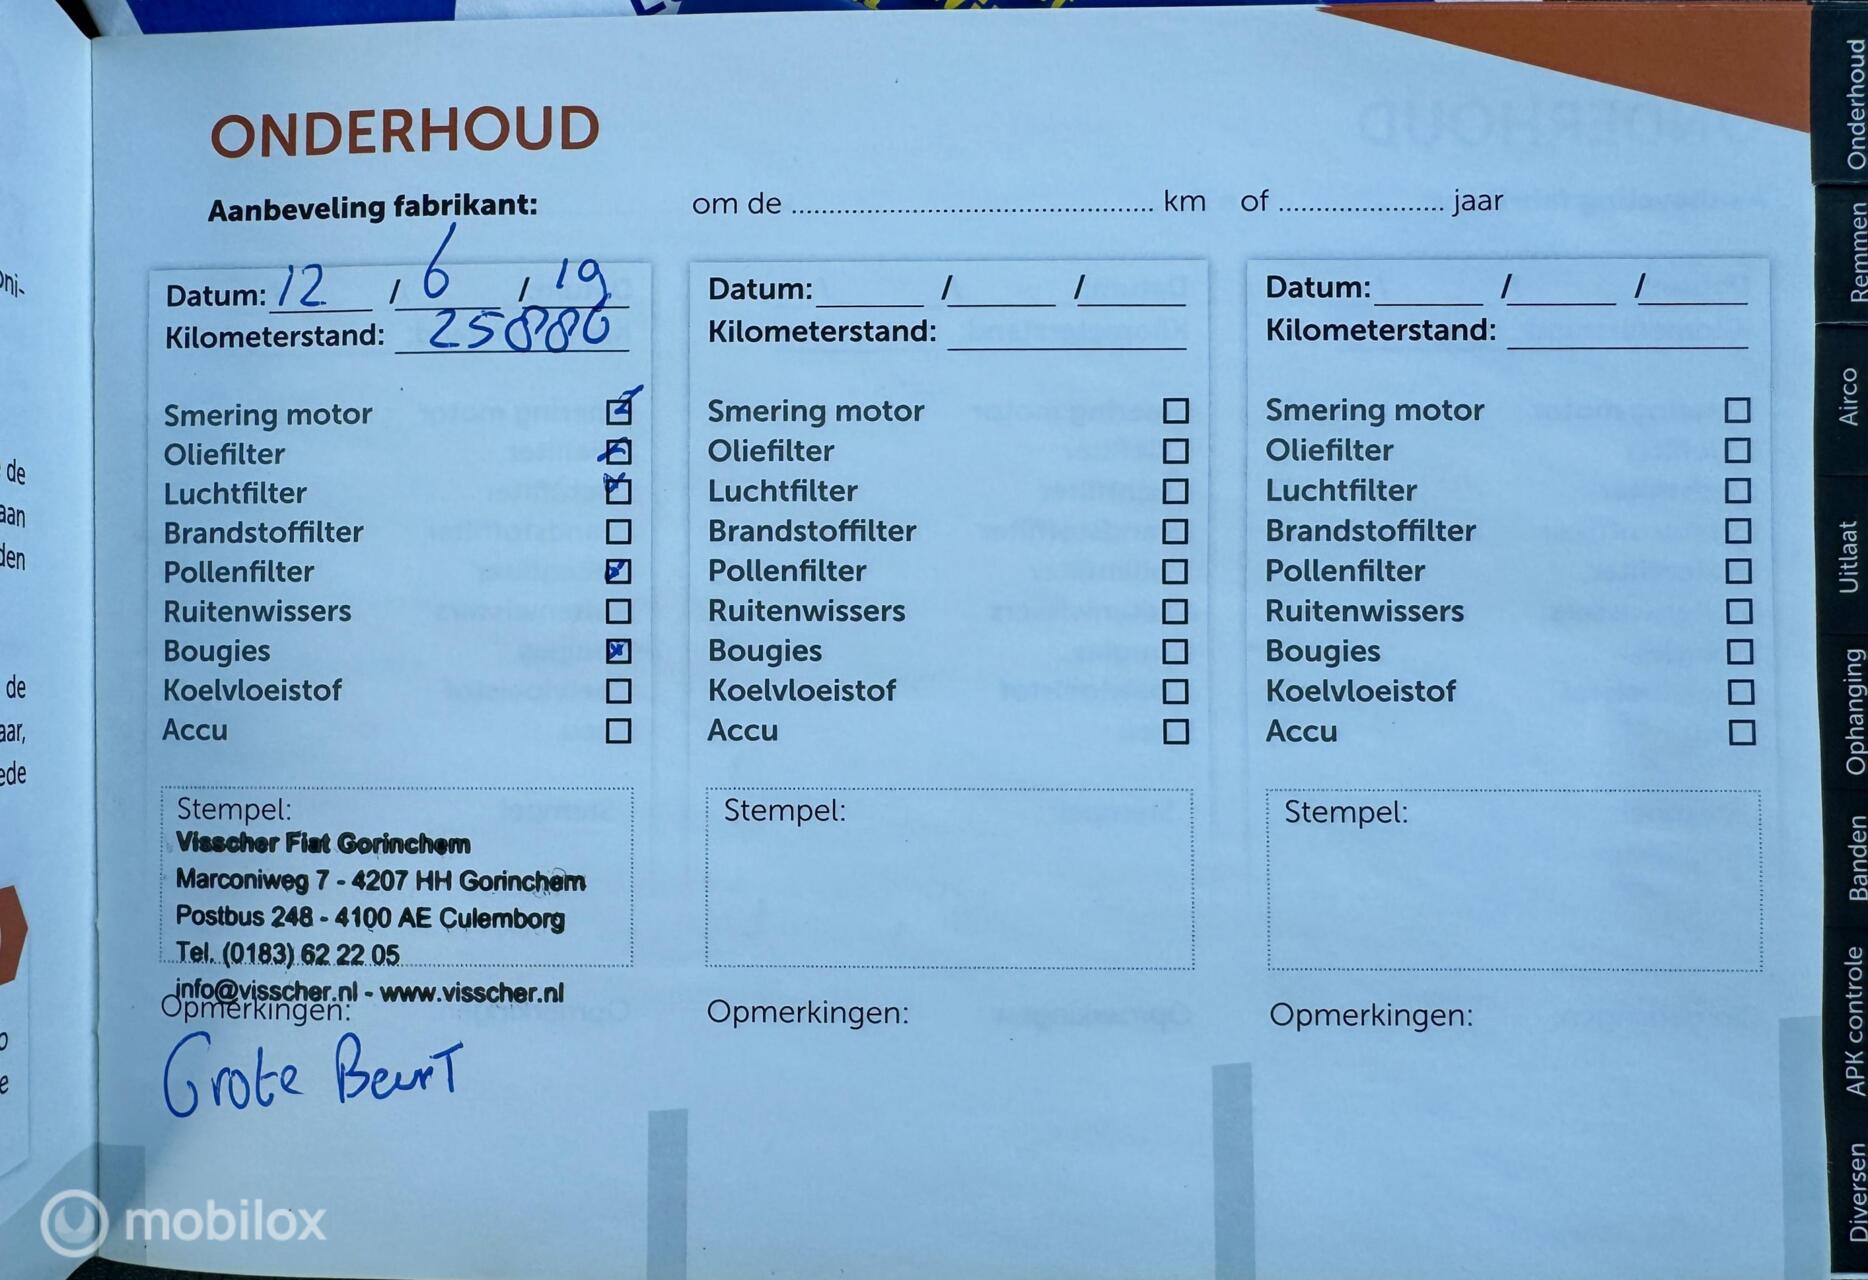 ONDERHOUD
Aanbeveling fabrikant: om de ................ km of ................ jaar
Datum: 12 / 6 / 19
Kilometerstand: 25886
Smering motor
Oliefilter
Luchtfilter
Brandstoffilter
Pollenfilter
Ruitenwissers
Bougies
Koelvloeistof
Accu
Stempel:
Visscher Fiat Gorinchem
Marconiweg 7 - 4207 HH Gorinchem
Postbus 248 - 4100 AE Culemborg
Tel. (0183) 62 22 05
info@visscher.nl - www.visscher.nl
Opmerkingen:
Grote Beurt
Datum: / /
Kilometerstand:
Smering motor
Oliefilter
Luchtfilter
Brandstoffilter
Pollenfilter
Ruitenwissers
Bougies
Koelvloeistof
Accu
Stempel:
Opmerkingen:
Datum: / /
Kilometerstand:
Smering motor
Oliefilter
Luchtfilter
Brandstoffilter
Pollenfilter
Ruitenwissers
Bougies
Koelvloeistof
Accu
Stempel:
Opmerkingen:
Onderhoud
Remmen
Airco
Uitlaat
Ophanging
Banden
APK controle
Diversen
de
aan
den
de
aar,
ede
mobilox